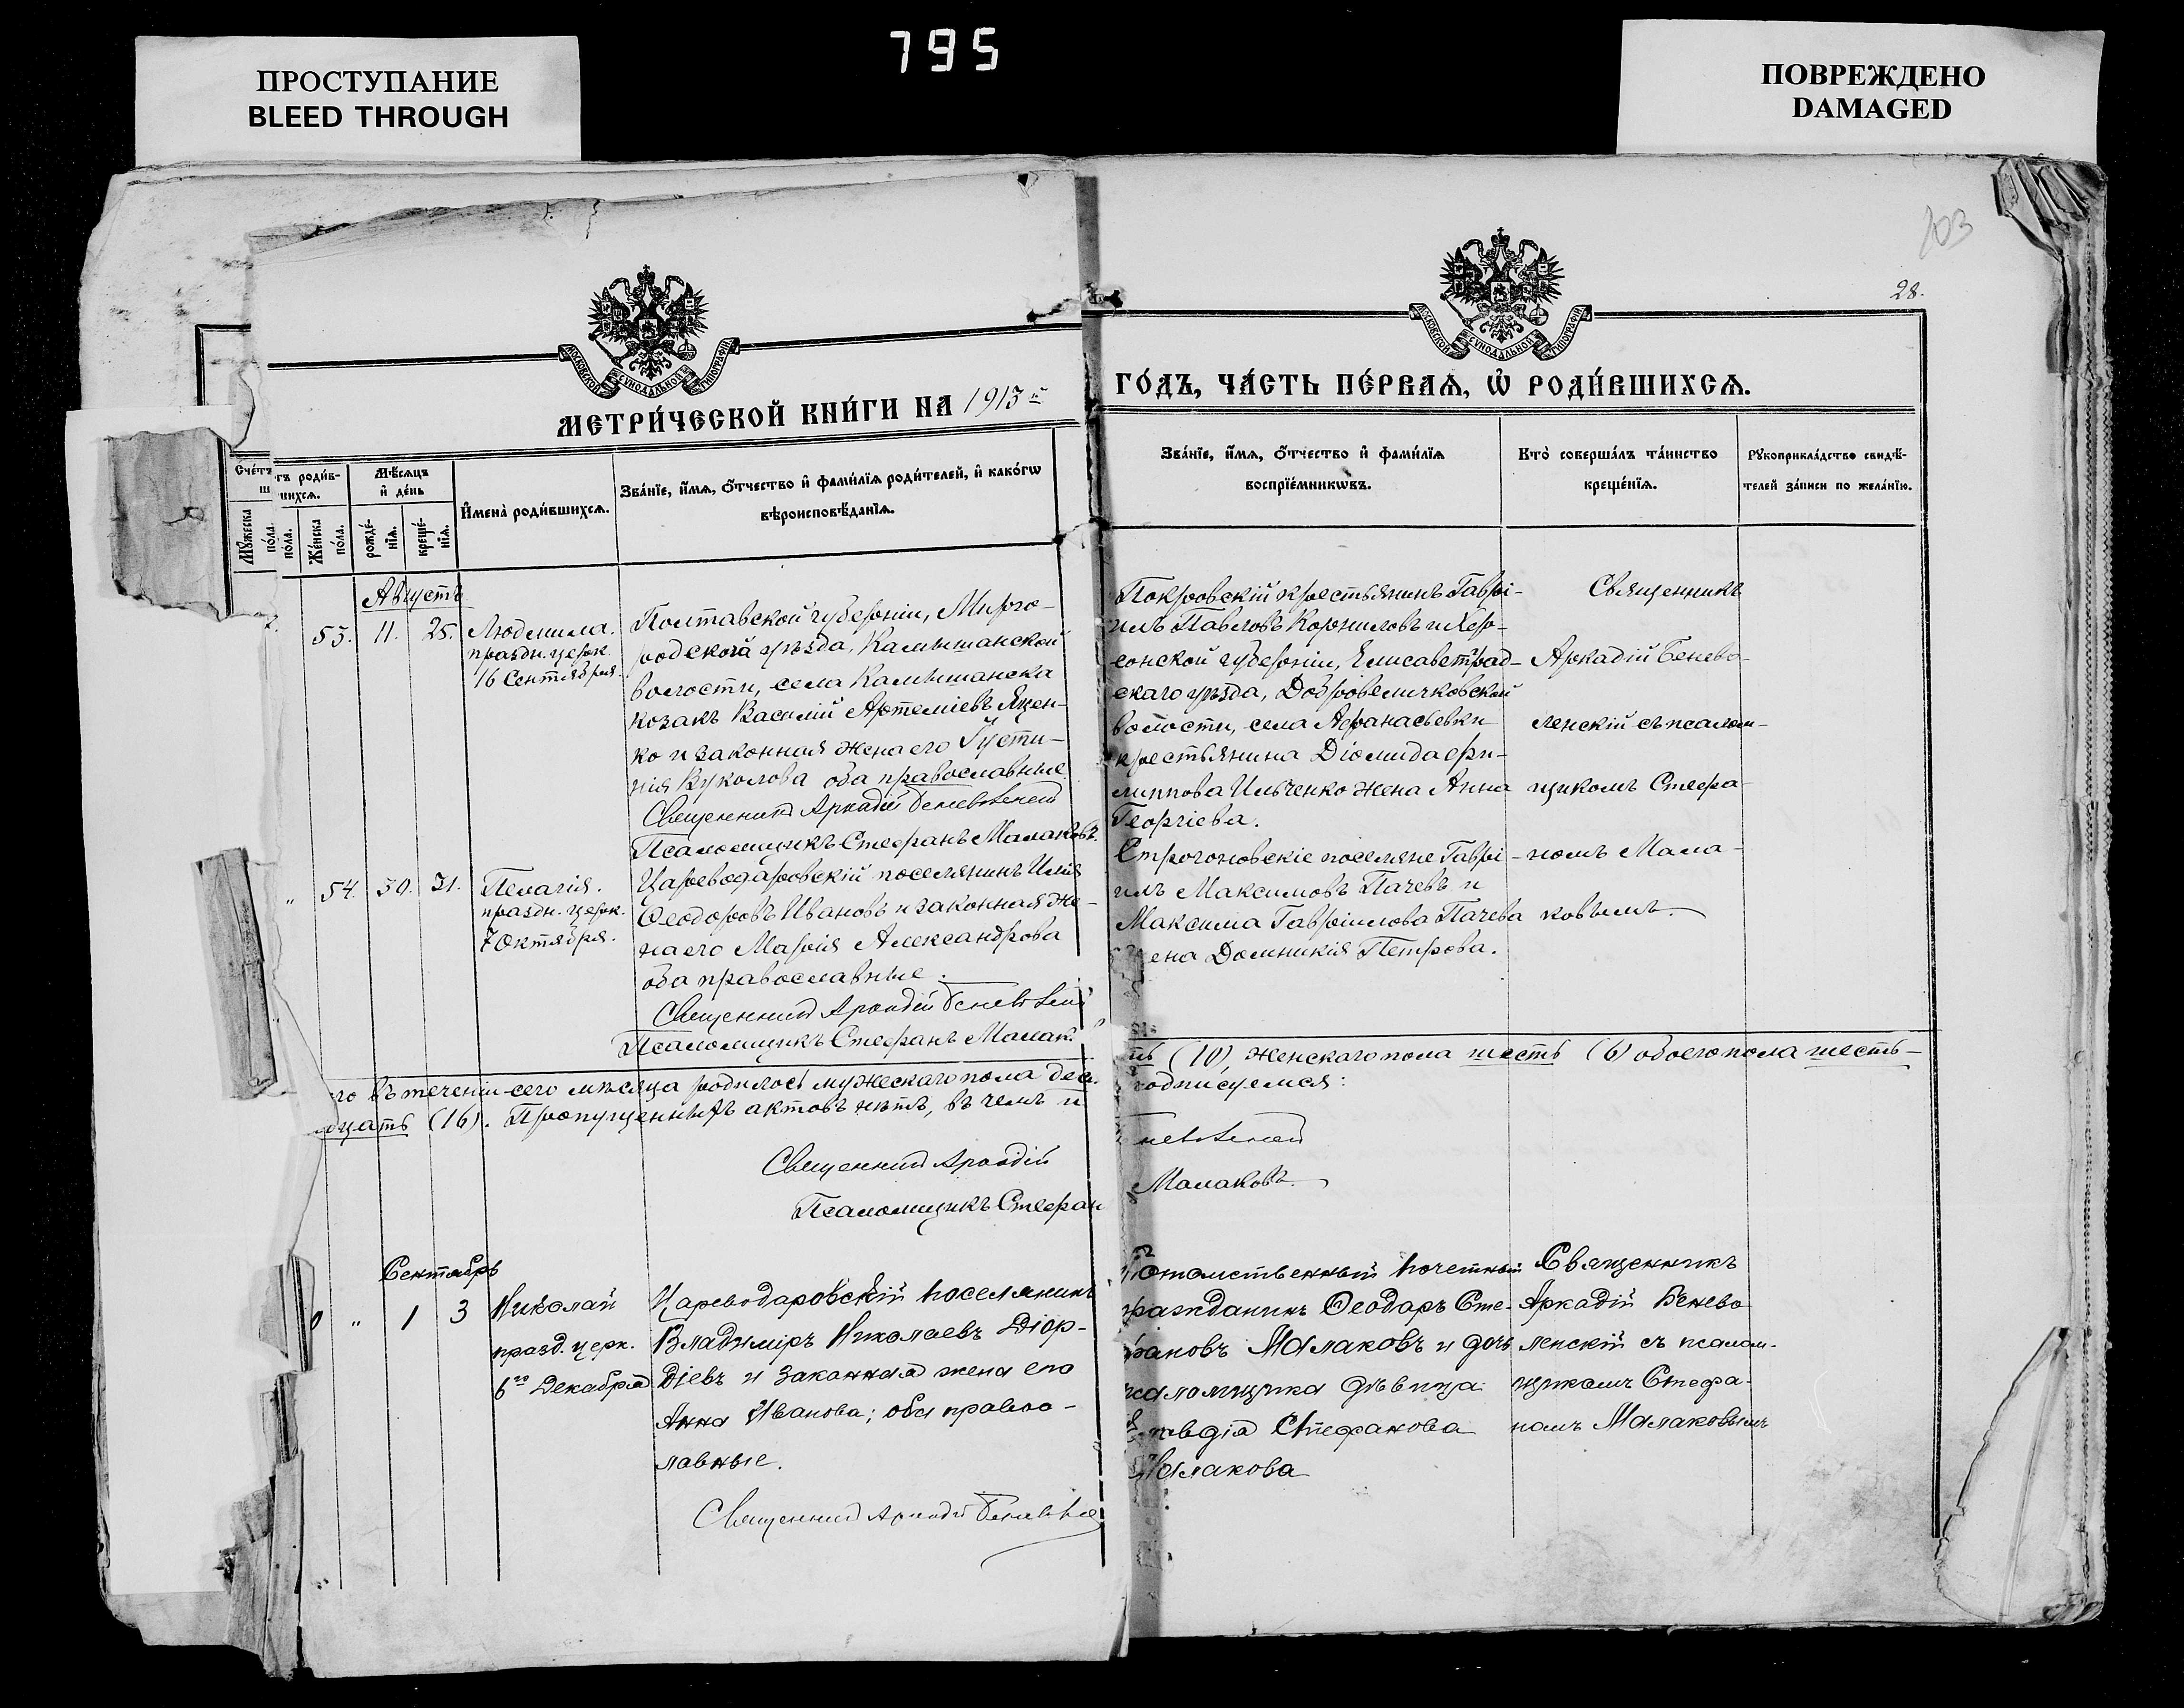 795
ПРОСТУПАНИЕ
BLEED THROUGH
ПОВРЕЖДЕНО
DAMAGED
103
28.
МОСКОВСКОЙ СѴНОДАЛЬНОЙ ТИПОГРАФІИ
МОСКОВСКОЙ СѴНОДАЛЬНОЙ ТИПОГРАФІИ
МЕТРИ́ЧЕСКОЙ КНИ́ГИ НА 1913й
ГО́ДЪ, ЧА́СТЬ ПЕ́РВАѦ, Ѡ҆ РОДИ́ВШИХСѦ.
Сче́тъ роди́в-
шихсѧ.
Мꙋ́жеска по́ла.
Же́нска по́ла.
Мѣ́сѧцъ и҆ де́нь
рожде́-нїѧ.
креще́-нїѧ.
И҆мена̀ роди́вшихсѧ.
Зва́нїе, и҆́мѧ, ѻ҆́тчество и҆ фами́лїѧ роди́телей, и҆ како́гѡ
вѣроисповѣ́данїѧ.
Зва́нїе, и҆́мѧ, ѻ҆́тчество и҆ фами́лїѧ
воспрїе́мникѡвъ.
Кто̀ соверша́лъ та́инство
креще́нїѧ.
Рꙋкоприкла́дство свидѣ́-
телей за́писи по жела́нїю.
Августъ
53. 11. 25.
Людмила.
праздн. церк.
16 Сентября.
Полтавской губерніи, Мирго-
родскаго уѣзда, Камышанской
волости, села Камышанска
козакъ Василій Артеміевъ Яцен-
ко и законная жена его Густи-
нія Вуколова оба православные
Священникъ Аркадій Беневоленскій
Псаломщикъ Стефанъ Малаковъ.
Покровскій крестьянинъ Гаврі-
илъ Павловъ Корниловъ и Хер-
сонской губерніи, Елисаветград-
скаго уѣзда, Добровеличковской
волости, села Афанасьевки
крестьянина Діомида Фи-
липпова Ильченко жена Анна
Георгіева.
Священникъ
Аркадій Бенево-
ленскій съ псалом-
щикомъ Стефа-
номъ Мала-
ковымъ.
" 54. 30. 31.
Пелагія.
праздн. церк.
7 Октября.
Цареводаровскій поселянинъ Илія
Ѳеодоровъ Ивановъ и законная же-
на его Марія Александрова
оба православные.
Священникъ Аркадій Беневолен
Псаломщикъ Стефанъ Малак.
Строгоновскіе поселяне Гаврі-
илъ Максимовъ Пачевъ и
Максима Гавріилова Пачева
жена Домникія Петрова.
го въ теченіи сего мѣсяца родилось мужескаго пола дес
ть (10), женскаго пола шесть (6) обоего пола шесть-
дцать (16). Пропущенныхъ актовъ нѣтъ, въ чемъ и
подписуемся:
Священникъ Аркадій
Беневоленскій
Псаломщикъ Стефан
Малаковъ.
Сентябрь
0 " 1 3
Николай
празд. церк.
6го Декабря
Цареводаровскій поселянинъ
Владиміръ Николаевъ Діор-
діевъ и законная жена его
Анна Иванова; оба правос-
лавные.
Священникъ Аркадій Беневоле
Потомственный почетный
гражданинъ Ѳеодоръ Сте-
фановъ Малаковъ и дочь
псаломщика дѣвица
Стефанова
Малакова
Священникъ
Аркадій Бенево-
ленскій съ псалом-
щикомъ Стефа-
номъ Малаковымъ